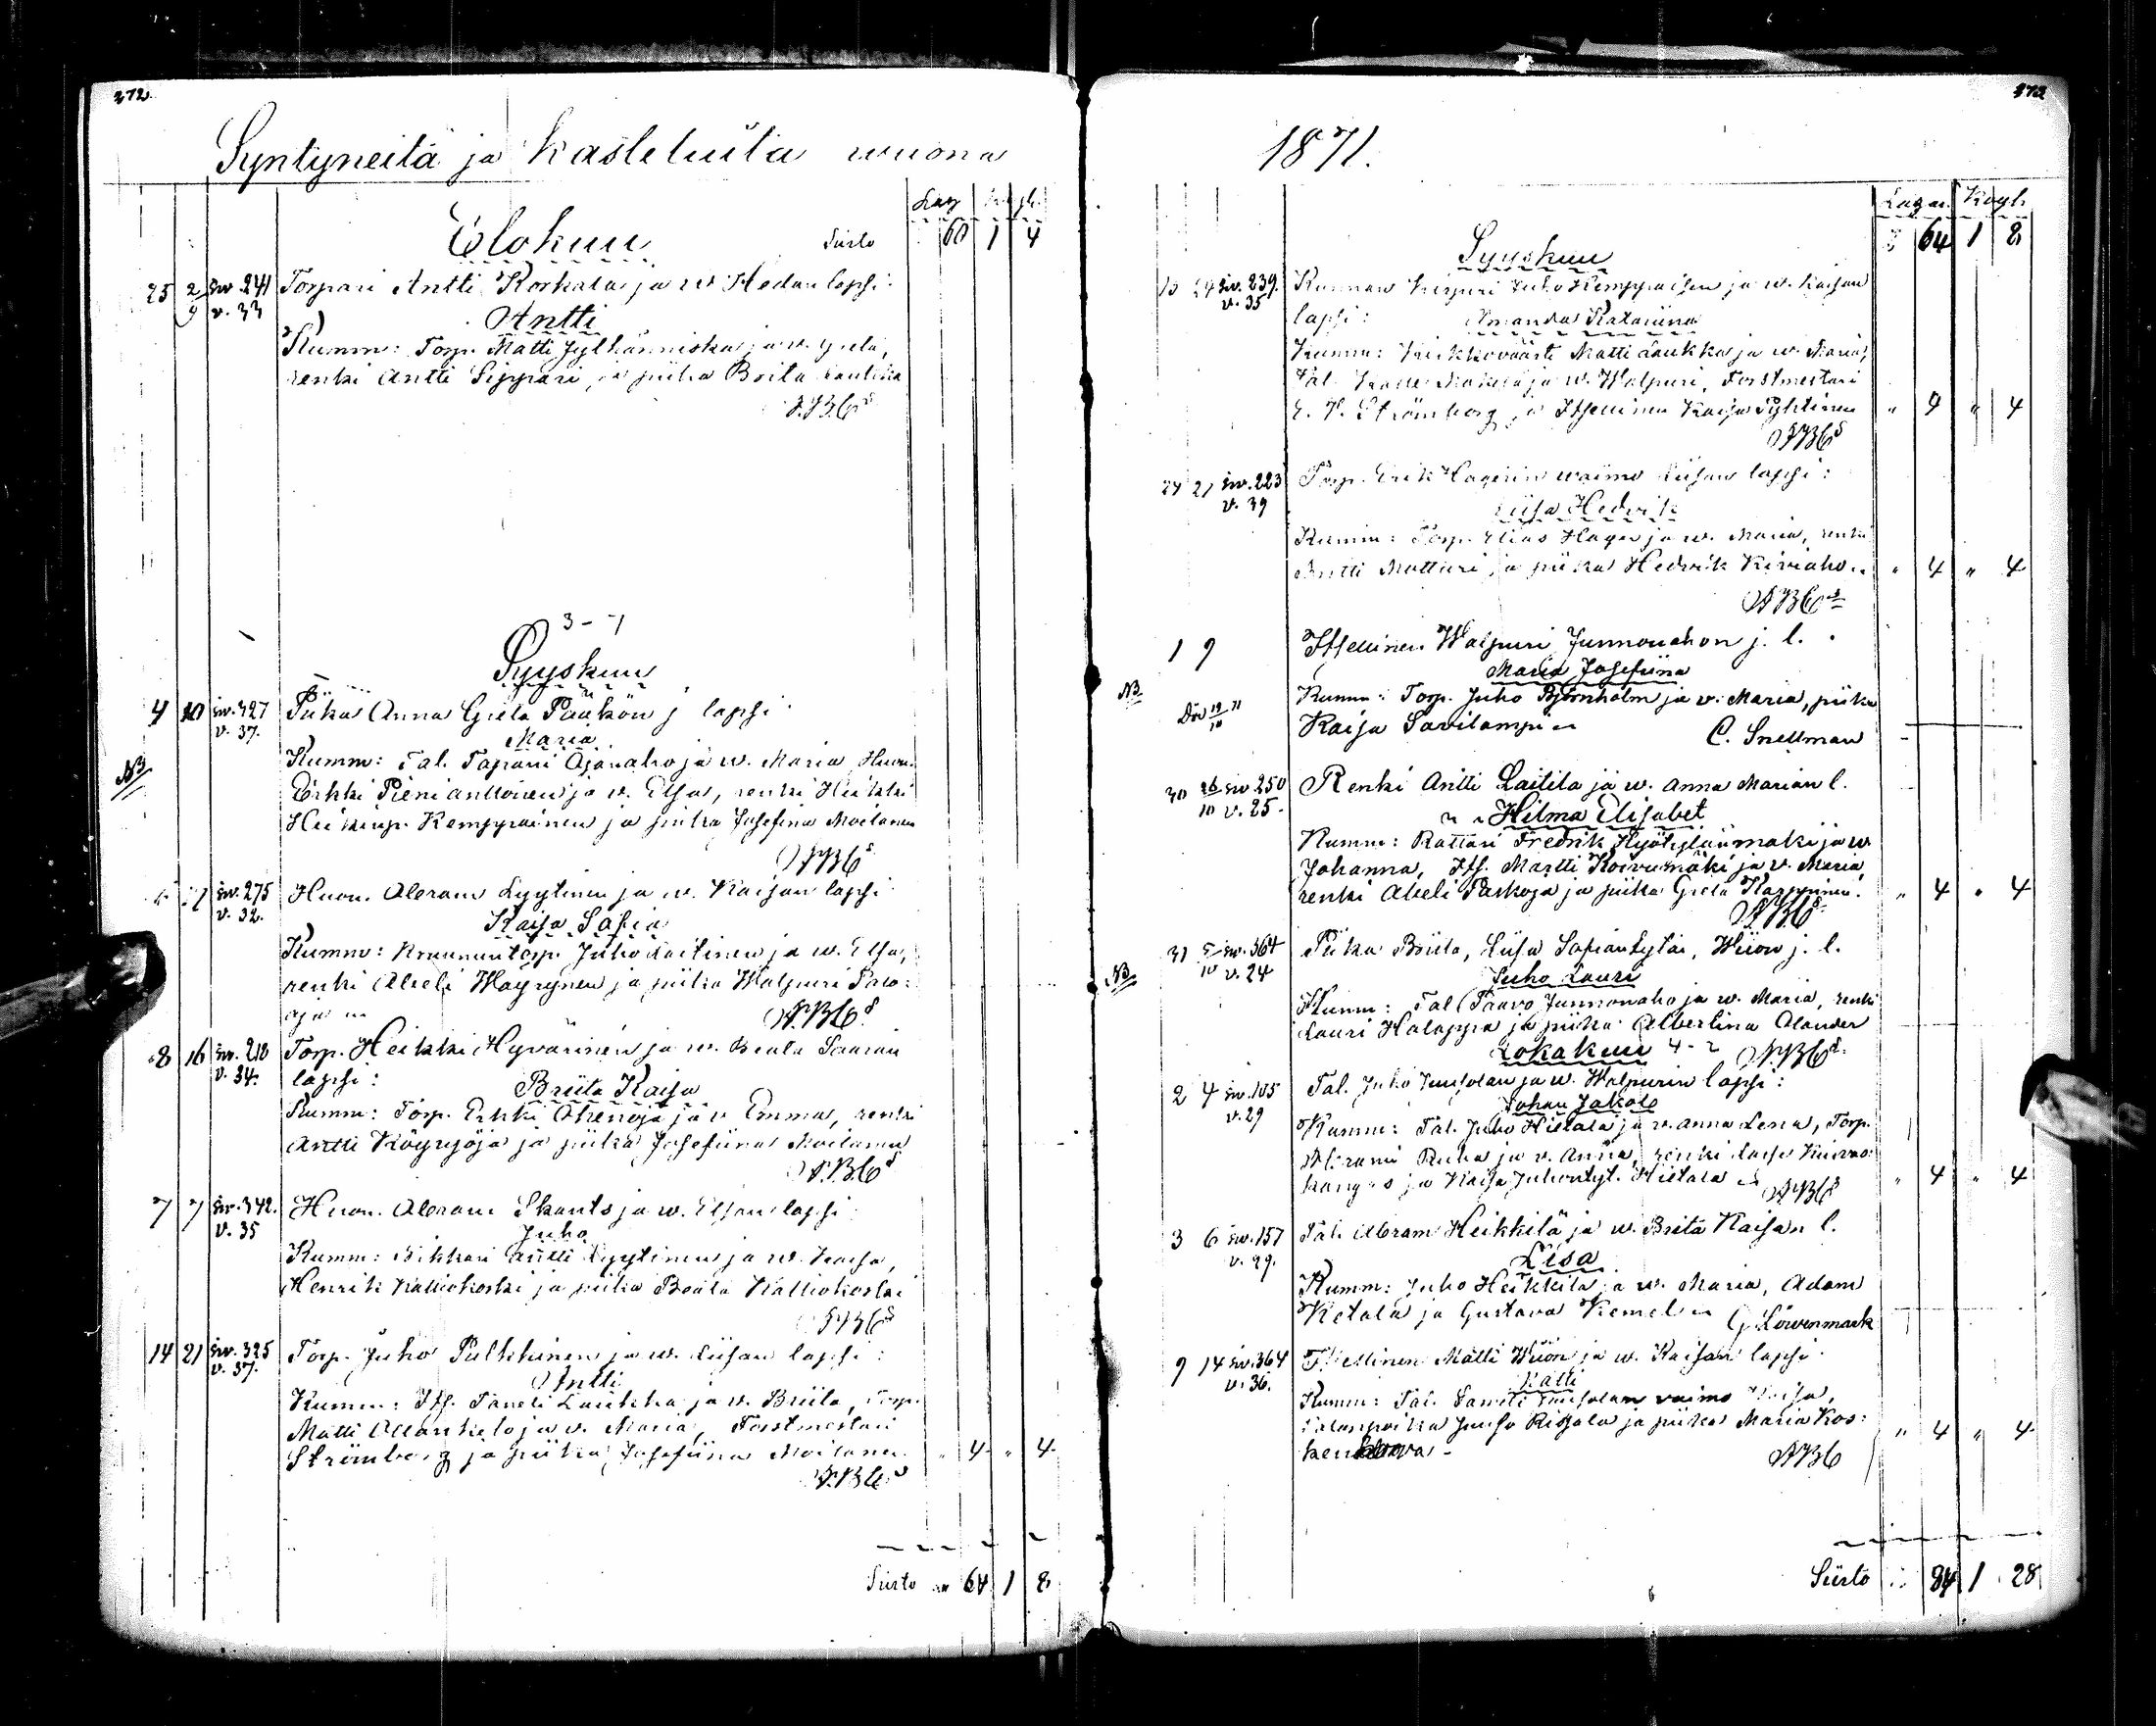 372
Syntyneitä ja kastetuita wuona
Elokuu
Siirto 60 1 4
25 2/9 siv. 241 Torpari Antti Korkala ja w. Hedan lapsi:
v. 33 Antti
Kumm: Torp. Matti Jylhänniska ja v. Greta,
renki Antti Sippari, ja piika Briita
3-7
Syyskuu
4 10 siv. 327 Piika Anna Greta Pääkön j lapsi
v. 37. Maria
Kumm: Tal. Tapani Ojanaho ja w. Maria, Huon.
NB Erkki Pieni anttoinen ja v. Elsa, renki Heikki
Heikinp. Kemppainen ja piika Josefina Moilanen
siv. 275 Huon. Abram Lyytinen ja w. Kaisan lapsi
v. 32. Kaisa Sofia
Kumm: Kruunutorp. Juho Laitinen ja w. Elsa,
renki Abeli Wäyrynen ja piika Walpuri Paro:
oja
8 16 siv. 218 Torp. Heikki Hyvärinen ja w. Beata Saaran
v. 34. lapsi:
Briita Kaisa
Kumm: Torp. Erkki Ahenoja ja v Emma, renki
Antti Köyryöja ja piika Josefiina Moilanen
7 7 siv. 342. Huon. Abram Skants ja w. Elsan lapsi
v. 35 Juho
Kumm: Antti Lyytinen ja w. Kaisa,
Henrik Kalliokoski ja piika Beata Kalliokoski
14 21 siv. 325 Torp. Juho Pulkkinen ja w. Liisan lapsi:
v. 37. Antti
Kumm: Its. Taneli Laukka ja v. Briita, Torp.
Matti Allankelo ja v. Maria, Forstmestari
Strömberg ja piika Josefiina Moilanen " 4 " 4
Siirto 64 1 8
373
1871.
Lagar Kogl.
Syyskuu 64 1 8
24 siv. 239. Kunnan Juho Kemppaisen ja w. Kaisan
v. 35 lapsi: Amanda Katariina
Kumm: Kirkkoväärti Matti Laukka ja w. Maria,
Tal. Mäkelä ja w. Walpuri, Forstmestari
Strömberg ja Itsellinen Kaisa " 4 " 4
21 siv. 223 Torp. Erik Hagerin waimo Liisan lapsi:
v. 39 Liisa Hedvik
Kumm: Torp. Elias Hager ja w. Maria, renki
Antti Mattari ja piika Hedvik Kiviaho " 4 " 4
1 9 Itsellinen Walpuri Junnonahon j. l.
Maria Josefiina
NB Kumm: Torp. Juho Björnholm ja v. Maria, piika
Kaisa Savilampi
C. Snellman
30 26/10 siv 250 Renki Antti Laitila ja w. Anna Marian l.
v. 25. Hilma Elisabet
Kumm: Rättäri Fredrik Hyötylänmäki ja w
Johanna, Its. Martti Koivumäki ja v. Maria,
renki Abeli Paskoja ja piika Greta Karppinen. " 4 " 4
siv. 364 Piika Briita, Liisa Sofiantytär, Wiion j. l.
NB v. 24 Juho Lauri
Kumm: Tal Paavo Junnonaho ja w. Maria, renki
Lauri Halappa ja piika Albertina Alander
Lokakuu 4-2
2 4 siv. 105 Tal. Juho Juusolan ja w. Walpurin lapsi:
v. 29 Johan Jakob
Kumm: Tal. Juho Hietala ja v. Anna Lena, Torp.
Abrami Ruha ja v. Anna, renki Lasse
kangas ja Kaisa Juhontyt. Hietala " 4 " 4
3 6 siv. 157 Tal. Abram Heikkilä ja w. Brita Kaisan l.
v. 29. Lisa
Kumm: Juho Heikkilä ja w. Maria, Adam
Ketala ja Gustava Kemel
G. Löwenmark
9 14 siv. 364 Itsellinen Matti Wiion ja w. Kaisan lapsi
v. 36. Matti
Kumm: Tal. Juusolan vaimo Kaisa,
Talanpoika Juho ja piika Maria Kos:
" 4 " 4
Siirto 84 1 28